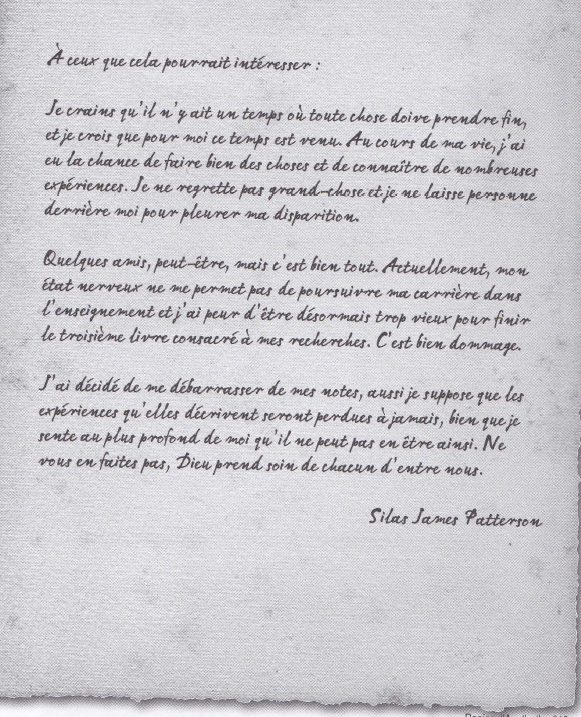 À ceux que cela pourrait intéresser :
Je crains qu'il n'y ait un temps où toute chose doive prendre fin,
et je crois que pour moi ce temps est venu. Au cours de ma vie, j'ai
eu la chance de faire bien des choses et de connaître de nombreuses
expériences. Je ne regrette pas grand-chose et je ne laisse personne
derrière moi pour pleurer ma disparition.
Quelques amis, peut-être, mais c'est bien tout. Actuellement, mon
état nerveux ne me permet pas de poursuivre ma carrière dans
l'enseignement et j'ai peur d'être désormais trop vieux pour finir
le troisième livre consacré à mes recherches. C'est bien dommage.
J'ai décidé de me débarrasser de mes notes, aussi je suppose que les
expériences qu'elles décrivent seront perdues à jamais, bien que je
sente au plus profond de moi qu'il ne peut pas en être ainsi. Ne
vous en faites pas, Dieu prend soin de chacun d'entre nous.
Silas James Patterson